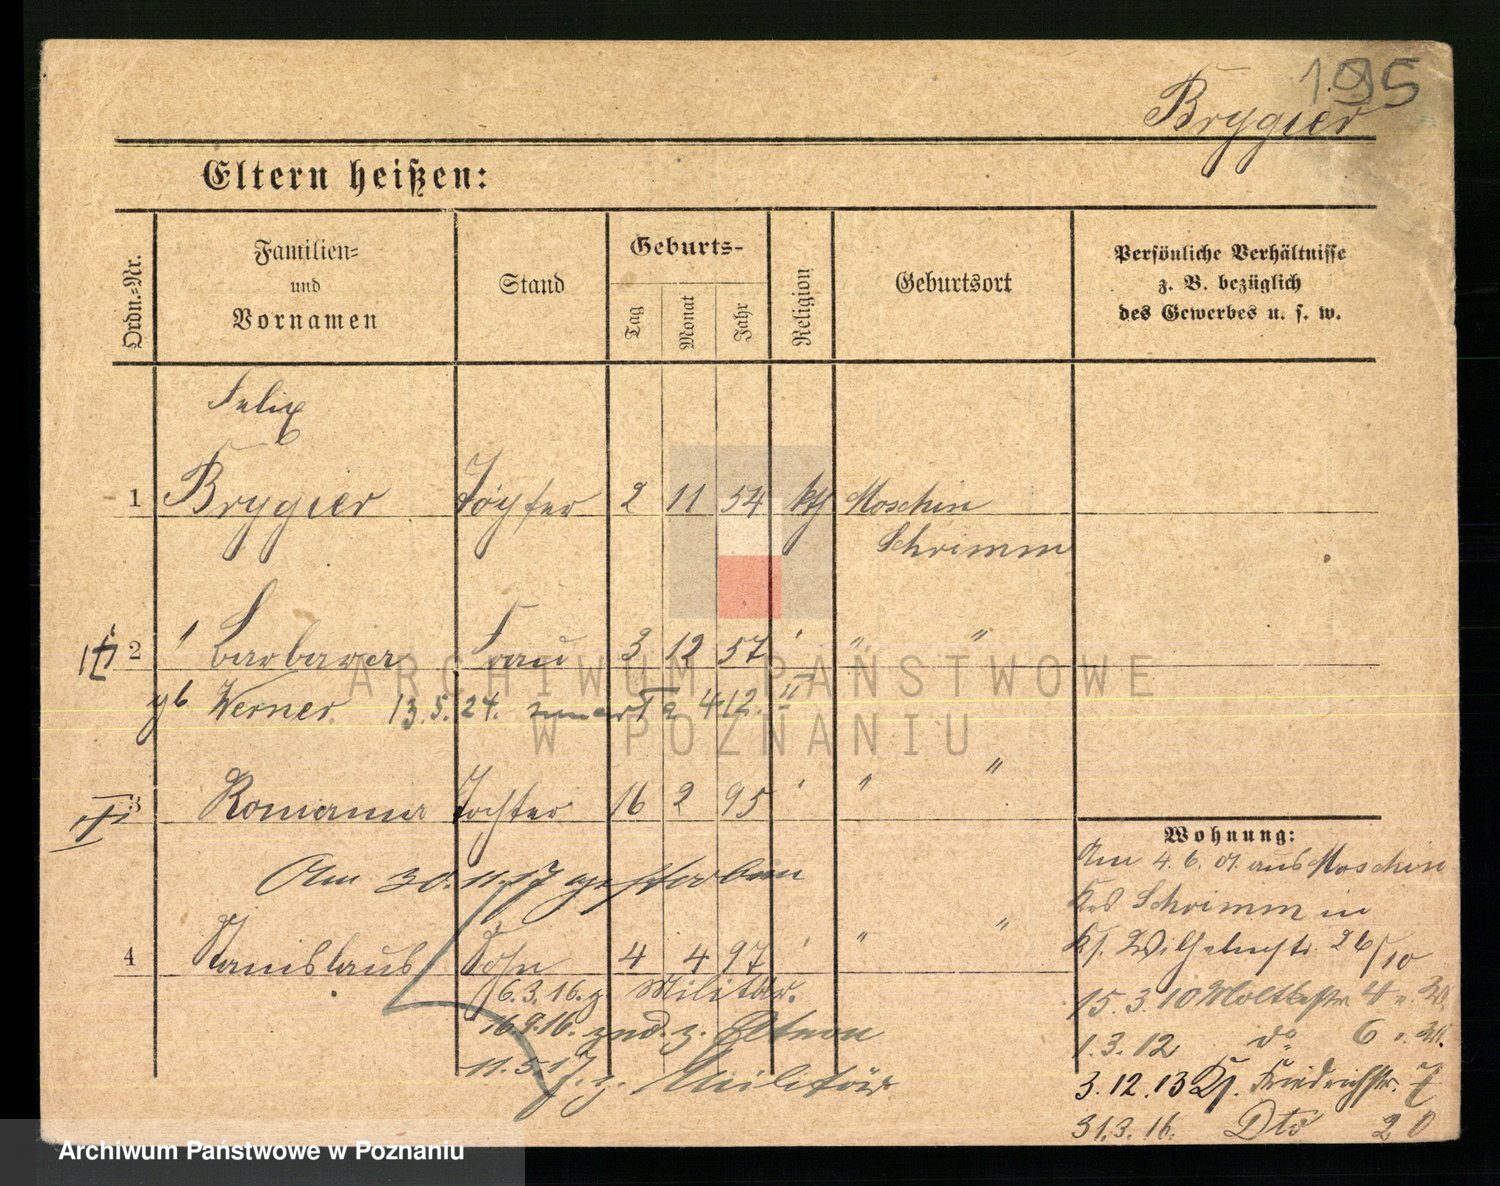 195
Brygier
Eltern heißen:
Ordn.-Nr.
Familien-
und
Vornamen
Stand
Geburts-
Tag
Monat
Jahr
Religion
Geburtsort
Persönliche Verhältnisse
z. B. bezüglich
des Gewerbes u. s. w.
Felix
1 Brygier Töpfer 2 11 54 kth Moschin
Schrimm
2 Barbara Frau 3 12 57 " "
Werner 13.5.24. 4 12.
3 Romana Tochter 16 2 95 " "
Am 30.11.17 gestorben
4 Stanislaus Sohn 4 4 97 " "
6.3.16. z. Militär.
16.9.16. z. Eltern
11.5.17. z. Militär
Wohnung:
Am 4.6.01. aus Moschin
Krs Schrimm in
Wilhelmstr. 26/10
15.3.10 Moltkestr. 4
1.3.12 do 6
3.12.13 Friedrichstr. 7
31.3.16. Dto 20
ARCHIWUM PAŃSTWOWE
W POZNANIU
Archiwum Państwowe w Poznaniu